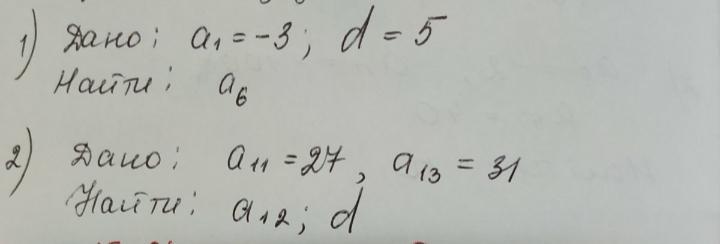 1) Дано: a₁ = -3; d = 5
Найти: a₆
2) Дано: a₁₁ = 27, a₁₃ = 31
Найти: a₁₂; d